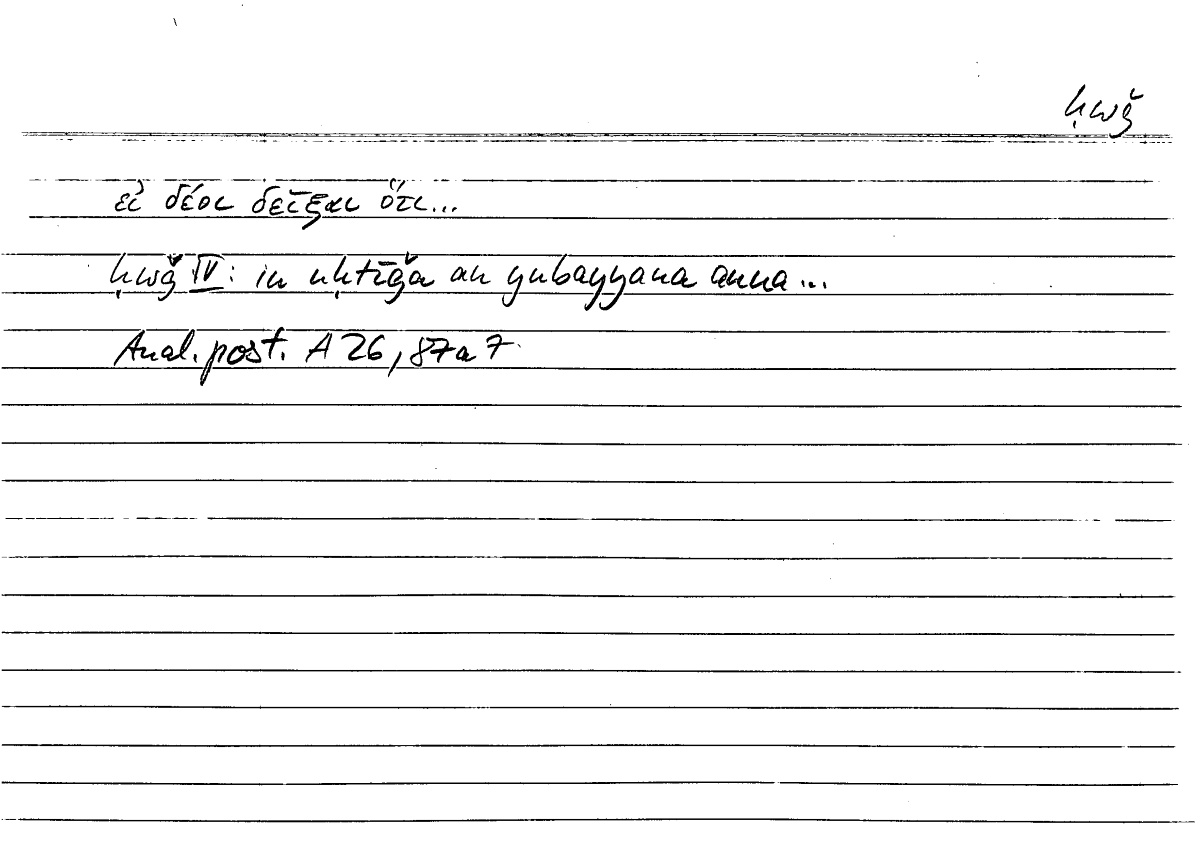 ḥwǧ
εἰ δέοι δεῖξαι ὅτι...
ḥwǧ IV: in uḥtīǧa an yubayyana anna...
Anal. post. A 26, 87a7.